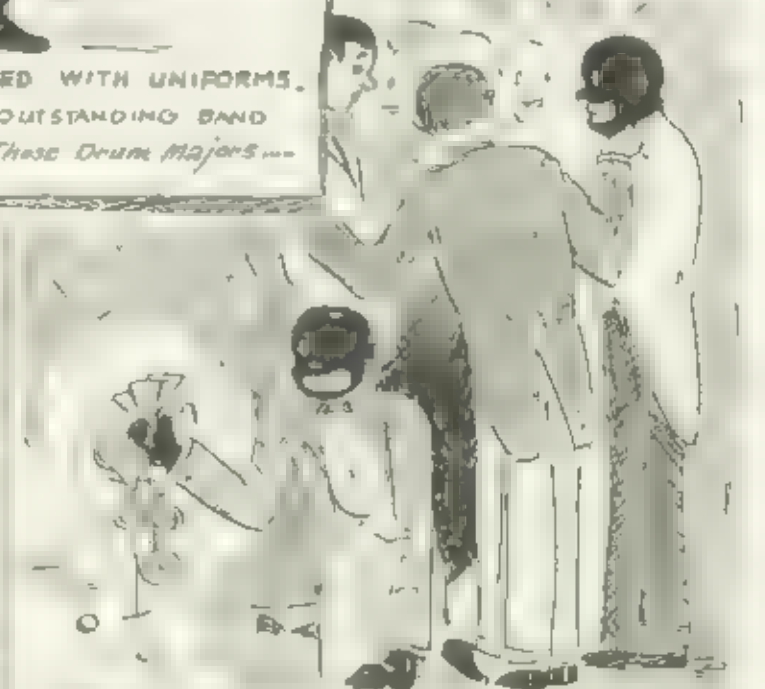 ED WITH UNIFORMS.
OUTSTANDING BAND
These Drum Majors...